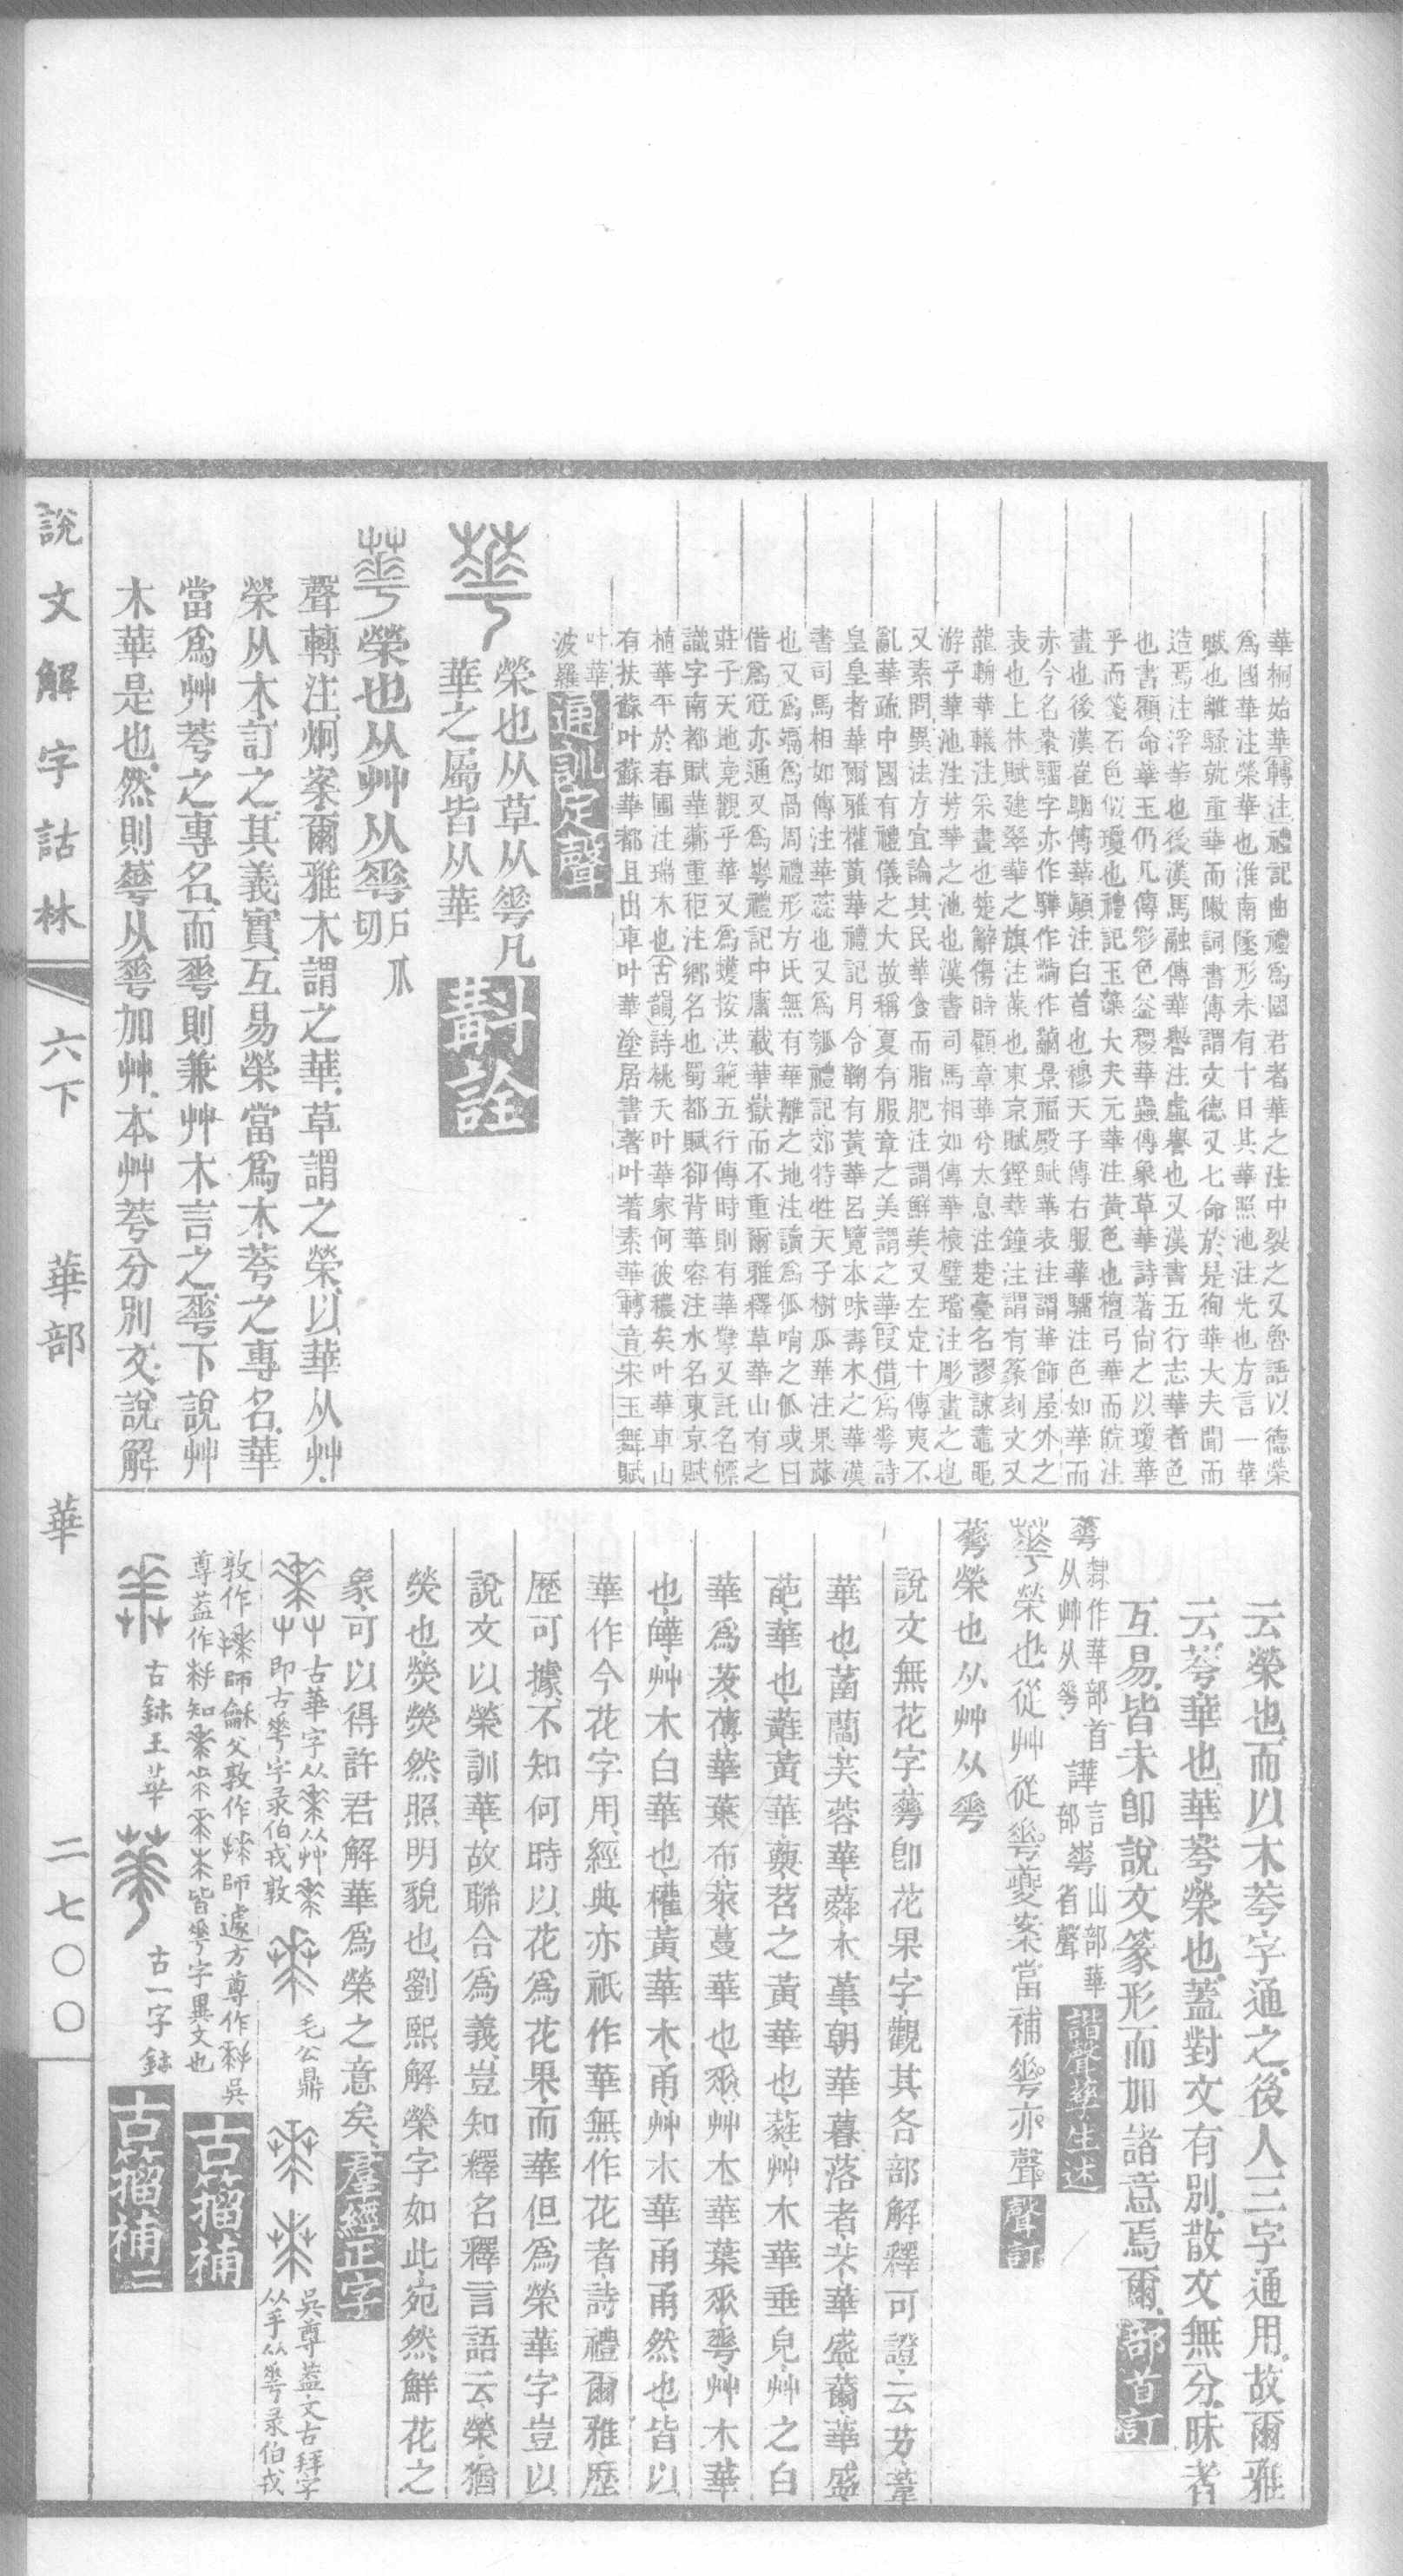 華桐始華轉注禮記曲禮爲國君者華之注中裂之又魯語以德榮
爲國華注榮華也淮南墬形末有十日其華照池注光也方言一華
晠也離騷就重華而敶詞書傳謂文德又七命於是徇華大夫聞而
造焉注浮華也後漢馬融傳華譽注虛譽也又漢書五行志華者色
也書顧命華玉仍几傳彩色益稷華蟲傳象草華詩著尙之以瓊華
乎而箋石色似瓊也禮記玉藻大夫元華注黃色也檀弓華而睆注
畫也後漢崔駰傳華顚注白首也穆天子傳右服華騮注色如華而
赤今名棗騮字亦作驊作𩦺作蘤景福殿賦華表注謂華飾屋外之
表也上林賦建翠華之旗注葆也東京賦鏗華鐘注謂有篆刻文又
龍輈華轙注采畫也楚辭傷時顧章華兮太息注楚臺名謬諫鼃黽
游乎華池注芳華之池也漢書司馬相如傳華榱璧璫注彫畫之也
又素問異法方宜論其民華食而脂肥注謂鮮美又左定十傳夷不
亂華疏中國有禮儀之大故稱夏有服章之美謂之華叚借爲𠌶詩
皇皇者華爾雅權黃華禮記月令鞠有黃華呂覽本味壽木之華漢
書司馬相如傳注華蕊也又爲瓠禮記郊特牲天子樹瓜華注果蓏
也又爲𠶷爲咼周禮形方氏無有華離之地注讀爲㼌哨之㼌或曰
借爲𤓰亦通又爲崋禮記中庸載華嶽而不重爾雅釋草華山有之
莊子天地堯觀乎華又爲嬳按洪範五行傳時則有華孽又託名幖
識字南都賦華薌重秬注鄉名也蜀都賦卻背華容注水名東京賦
植華平於春圃注瑞木也古韻詩桃夭叶華家何彼穠矣叶華車山
有扶蘇叶蘇華都且出車叶華塗居書著叶著素華轉音宋玉舞賦
叶華
波羅 通訓定聲
華 榮也从草从𠌶凡
華之屬皆从華 斠詮
華 榮也从艸从𠌶戶瓜
切
聲轉注炯案爾雅木謂之華草謂之榮以華从艸
榮从木訂之其義實互易榮當爲木荂之專名華
當爲艸荂之專名而𠌶則兼艸木言之𠌶下說艸
木華是也然則蕐从𠌶加艸本艸荂分別文說解
說文解字詁林 六下 華部 華 二七〇〇
云榮也而以木荂字通之後人三字通用故爾雅
云荂華也華荂榮也蓋對文有別散文無分昧者
互易皆未卽說文篆形而加諸意焉爾 部首訂
蕐隸作華部首 譁言 崋山部華
从艸从𠌶 部 省聲 諧聲孳生述
華 榮也從艸從𠌶夔案當補𠌶亦聲 聲訂
蕚榮也从艸从𠌶
說文無花字蕚卽花果字觀其各部解釋可證云芳葦
華也菡萏芙蓉華蕣木堇朝華暮落者芣華盛薾華盛
葩華也蘳黃華蔈苕之黃華也蕤艸木華垂皃艸之白
華爲茇蓴華葉布䔾蔓華也𠂹艸木華葉𠂹𠌶艸木華
也皣艸木白華也權黃華木甬艸木華甬甬然也皆以
華作今花字用經典亦祇作華無作花者詩禮爾雅歷
歷可據不知何時以花爲花果而華但爲榮華字豈以
說文以榮訓華故聯合爲義豈知釋名釋言語云榮猶
熒也熒熒然照明貌也劉熙解榮字如此宛然鮮花之
象可以得許君解華爲榮之意矣 羣經正字
古華字从 从艸
卽古𠌶字彔伯戎敦 毛公鼎 吳尊蓋文古拜字
从手从𠌶彔伯戎
敦作 師龢父敦作 師遽方尊作 吳
尊蓋作 知 皆𠌶字異文也 古籀補
古鉢王華 古一字鉢 古籀補二